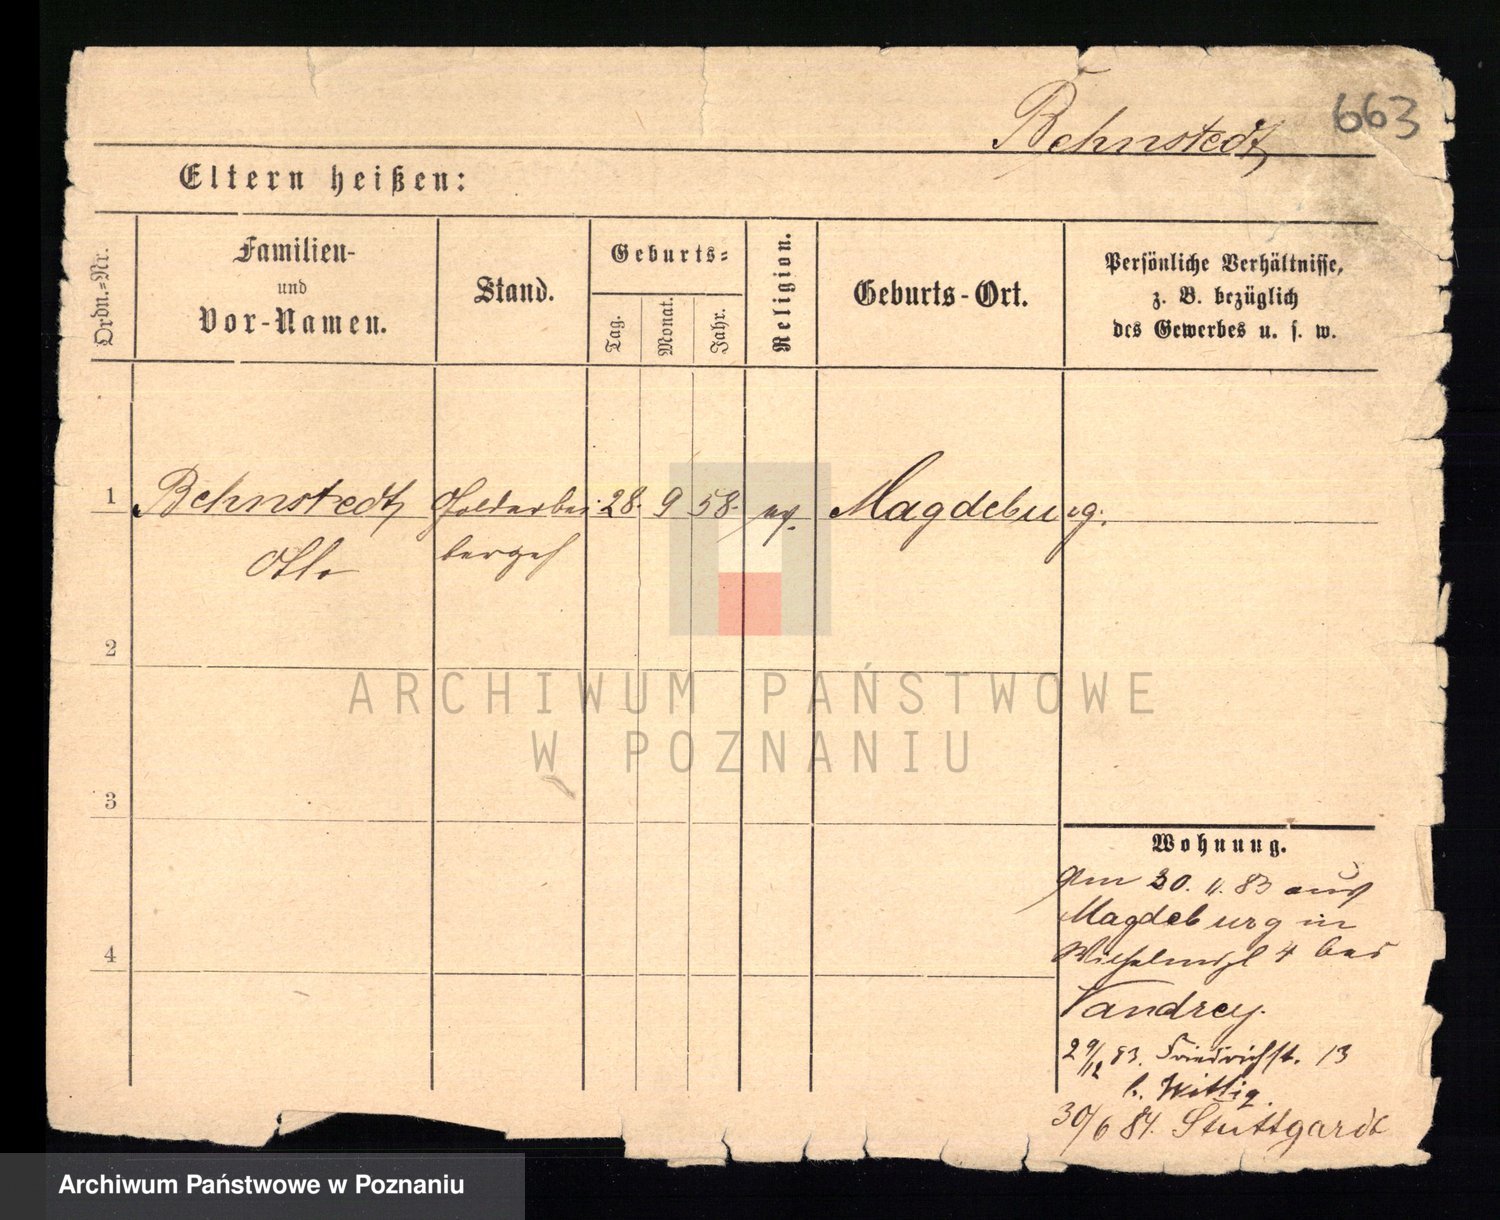 663
Behnstedt
Eltern heißen:
Ordn.=Nr.
Familien-
und
Vor-Namen.
Stand.
Geburts=
Tag.
Monat.
Jahr.
Religion.
Geburts-Ort.
Persönliche Verhältnisse,
z. B. bezüglich
des Gewerbes u. s. w.
1
Behnstedt
Otto
Goldarbei
28. 9 58.
ev.
Magdeburg.
2
3
4
ARCHIWUM PAŃSTWOWE
W POZNANIU
Wohnung.
Am 30. 11. 83 aus
Magdeburg in
Wilhelmspl 4 bei
Vandrey.
29/12 83. Friedrichst. 13
b. Wittig.
30/6 84. Stuttgardt
Archiwum Państwowe w Poznaniu